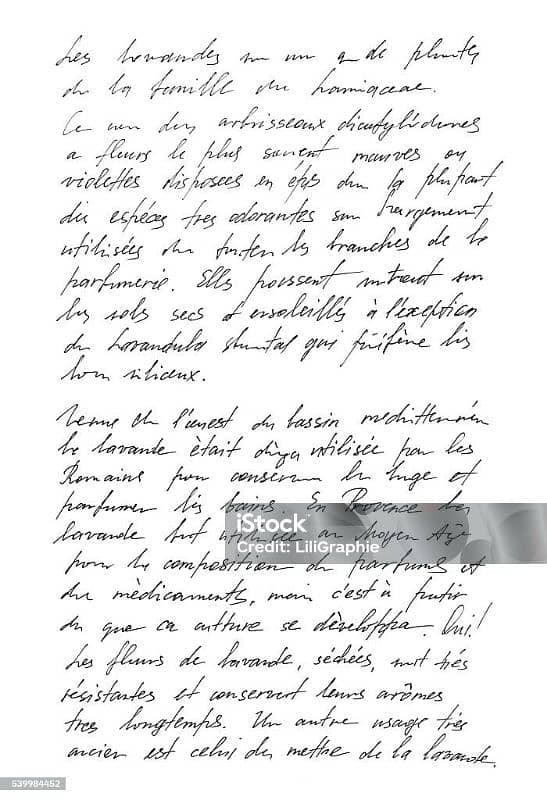 Les lavandes
de la famille du Lamiaceae.
Ce arbrisseaux dicotylédones
a fleurs le plus souvent mauves ou
violettes disposees en épis la plupart
des espéces tres odorantes largement
utilisées branches de la
parfumerie. Elles poussent surtout sur
les sols secs et ensoleillés à l'éxception
du Lavandula qui préfère les
siliceux.
Venue de l'ouest du bassin
la lavande ètait utilisée par les
Romains pour conserver le linge et
parfumer les bains. En Provence la
lavande fut utilisée au Moyen Age
pour la composition de parfums et
du mèdicaments, mais c'est à
du que ca culture se dèveloppa. Oui!
Les fleurs de lavande, séchées, sont trés
résistantes et conservent leurs arômes
tres longtemps. Un autre usage trés
ancien est celui de mettre de la lavande.
iStock
Credit: LiliGraphie
539984452